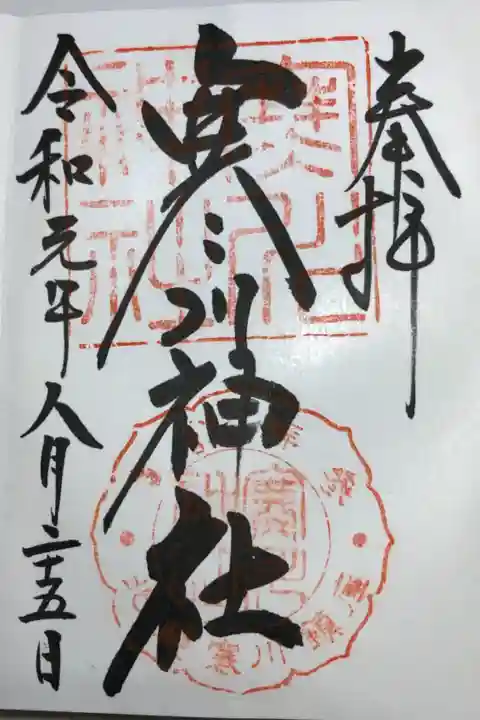 奉拝
寒川神社
令和元年八月二十五日